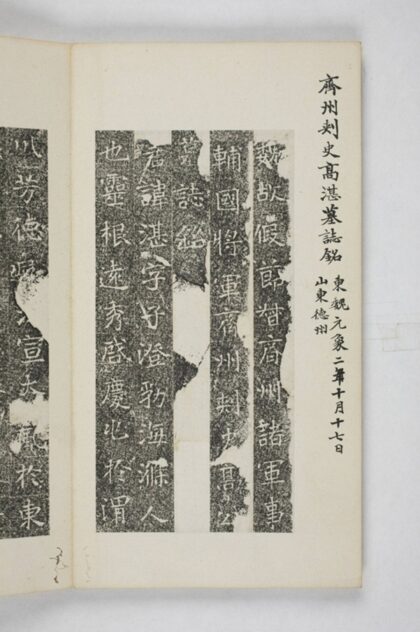 齊州刾史高湛墓誌銘
東魏元象二年十月十七日
山東德州
魏故假節督齊州諸軍事
輔國將軍齊州刾史高公
墓誌銘
君諱湛字子澄勃海滌人
也靈根遠秀啓慶兆於渭
川芳德宣大風於東